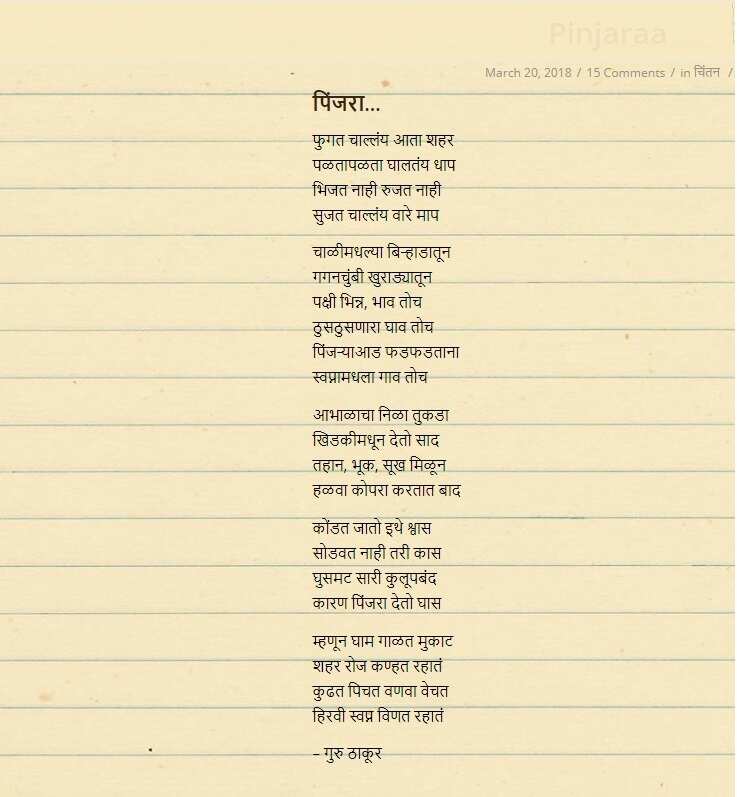 Pinjaraa
March 20, 2018 / 15 Comments / in चिंतन /
पिंजरा...
फुगत चाल्लंय आता शहर
पळतापळता घालतंय धाप
भिजत नाही रुजत नाही
सुजत चाल्लंय वारे माप
चाळीमधल्या बिऱ्हाडातून
गगनचुंबी खुराड्यातून
पक्षी भिन्न, भाव तोच
ठुसठुसणारा घाव तोच
पिंजऱ्याआड फडफडताना
स्वप्नामधला गाव तोच
आभाळाचा निळा तुकडा
खिडकीमधून देतो साद
तहान, भूक, सूख मिळून
हळवा कोपरा करतात बाद
कोंडत जातो इथे श्वास
सोडवत नाही तरी कास
घुसमट सारी कुलूपबंद
कारण पिंजरा देतो घास
म्हणून घाम गाळत मुकाट
शहर रोज कण्हत रहातं
कुढत पिचत वणवा वेचत
हिरवी स्वप्न विणत रहातं
– गुरु ठाकूर